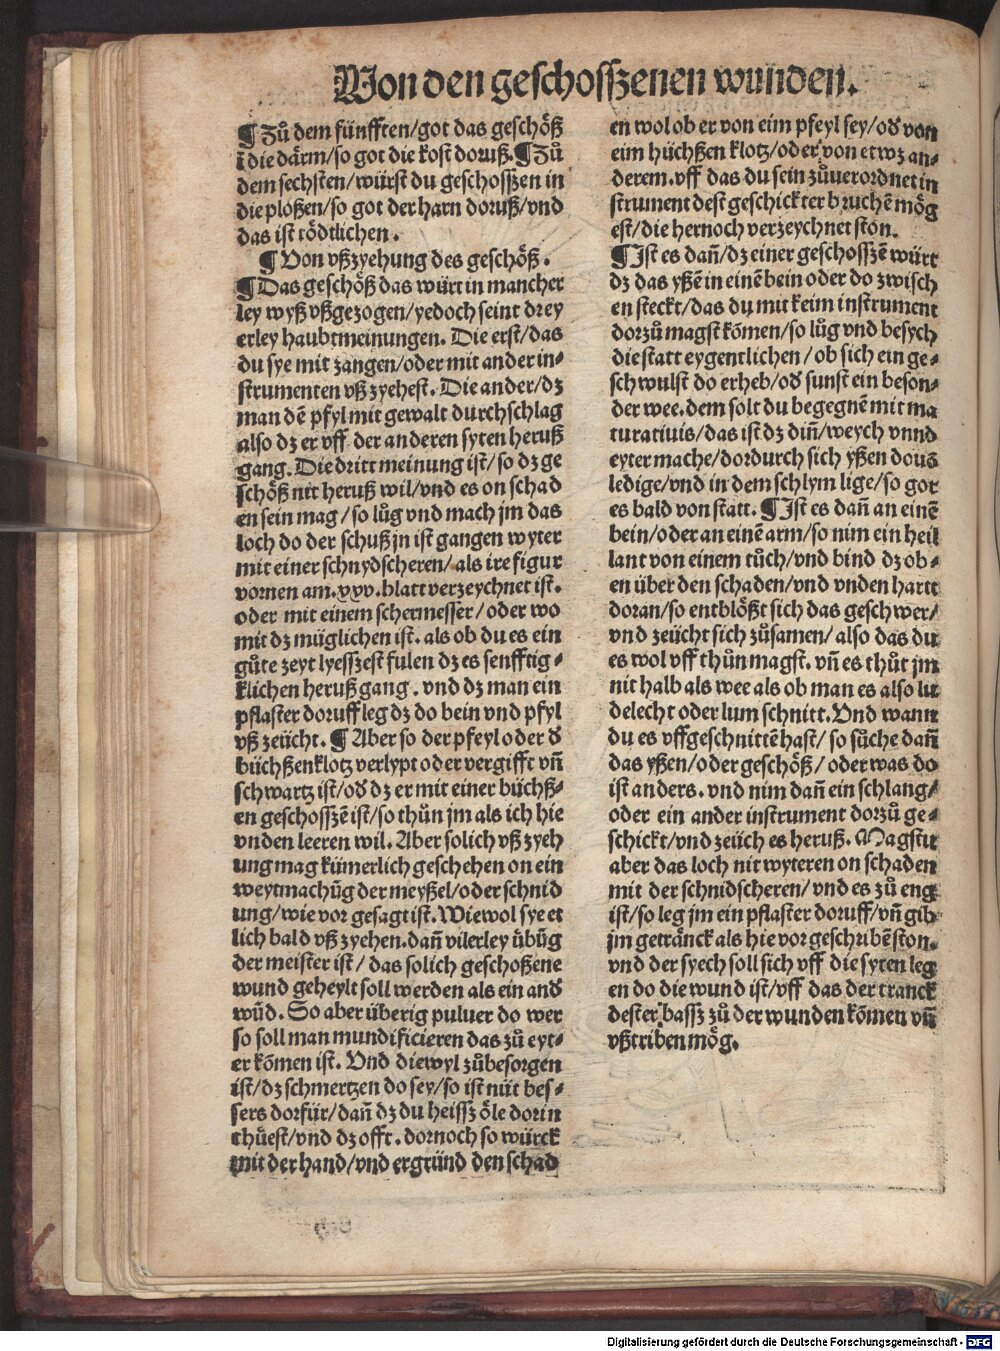 Von den geschosszenen wunden.
¶ Zů dem fünfften/got das geschöß
ī die därm/so got die kost doruß. ¶ Zů
dem sechsten/würst du geschosszen in
die ploßen/so got der harn doruß/vnd
das ist tödtlichen.
¶ Von vßzyehung des geschöß.
¶ Das geschöß das würt in mancher
ley wyß vßgezogen/yedoch seint drey
erley haubtmeinungen. Die erst/das
du sye mit zangen/oder mit ander in⸗
strumenten vß zyehest. Die ander/dz
man dē pfyl mit gewalt durchschlag
also dz er vff der anderen syten heruß
gang. Die dritt meinung ist/so dz ge
schöß nit heruß wil/vnd es on schad
en sein mag/so lůg vnd mach jm das
loch do der schuß jn ist gangen wyter
mit einer schnydscheren/als ire figur
vornen am.xxv.blatt verzeychnet ist.
oder mit einem schermesser/oder wo
mit dz müglichen ist. als ob du es ein
gůte zeyt lyesszest fulen dz es senfftig⸗
klichen heruß gang. vnd dz man ein
pflaster doruff leg dz do bein vnd pfyl
vß zeücht. ¶ Aber so der pfeyl oder ď
büchßenklotz verlypt oder vergifft vñ
schwartz ist/oď dz er mit einer büchß⸗
en geschosszē ist/so thůn jm als ich hie
vnden leeren wil. Aber solich vß zyeh
ung mag kümerlich geschehen on ein
weytmachūg der meyßel/oder schnid
ung/wie vor gesagt ist. Wiewol sye et
lich bald vß zyehen. dañ vilerley übūg
der meister ist/das solich geschoßene
wund geheylt soll werden als ein anď
wūd. So aber überig puluer do wer
so soll man mundificieren das zů eyt⸗
er kōmen ist. Vnd diewyl zůbesorgen
ist/dz schmertzen do sey/so ist nüt bes⸗
sers dorfür/dañ dz du heissz öle dorin
thůest/vnd dz offt. dornoch so würck
mit der hand/vnd ergründ den schad
en wol ob er von eim pfeyl sey/oď von
eim büchßen klotz/oder von etwz an⸗
derem. vff das du sein zůuerordnet in
strument dest geschickter bruchē mög
est/die hernoch verzeychnet ston.
¶ Ist es dañ/dz einer geschosszē würt
dz das yßē in einē bein oder do zwisch
en steckt/das du mit keim instrument
dorzů magst kōmen/so lůg vnd besych
die statt eygentlichen/ob sich ein ge⸗
schwulst do erheb/oď sunst ein beson⸗
der wee. dem solt du begegnē mit ma
turatiuis/das ist dz diñ/weych vnnd
eyter mache/dordurch sich yßen douō
ledige/vnd in dem schlym lige/so got
es bald von statt. ¶ Ist es dañ an einē
bein/oder an einē arm/so nim ein heil
lant von einem tůch/vnd bind dz ob⸗
en über den schaden/vnd vnden hartt
doran/so entblößt sich das geschwer/
vnd zeücht sich zůsamen/also das du
es wol vff thůn magst. vñ es thůt jm
nit halb als wee als ob man es also lu
delecht oder lum schnitt. Vnd wann
du es vffgeschnittē hast/so sůche dañ
das yßen/oder geschöß/oder was do
ist anders. vnd nim dañ ein schlang/
oder ein ander instrument dorzů ge⸗
schickt/vnd zeüch es heruß. Magstu
aber das loch nit wyteren on schaden
mit der schnidscheren/vnd es zů eng
ist/so leg jm ein pflaster doruff/vñ gib
jm getränck als hie vor geschribē ston.
vnd der syech soll sich vff die syten leg
en do die wund ist/vff das der tranck
dester bassz zů der wunden kōmen vñ
vßtriben mög.
Digitalisierung gefördert durch die Deutsche Forschungsgemeinschaft - DFG